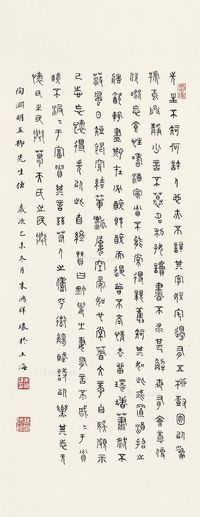 先生不知何許人也亦不詳其姓字宅邊有五柳樹因以為
號焉閑靜少言不慕榮利好讀書不求甚解每有會意便
欣然忘食性嗜酒家貧不能常得親舊知其如此或置酒招之
造飲輒盡期在必醉既醉而退曾不吝情去留環堵蕭然不
蔽風日短褐穿結簞瓢屢空晏如也常著文章自娛頗示
己志忘懷得失以此自終贊曰黔婁之妻有言不戚戚于貧
賤不汲汲于富貴其言茲若人之儔乎銜觴賦詩以樂其志無
懷氏之民歟葛天氏之民歟
陶淵明五柳先生傳 歲次乙未冬月朱鴻祥 於上海